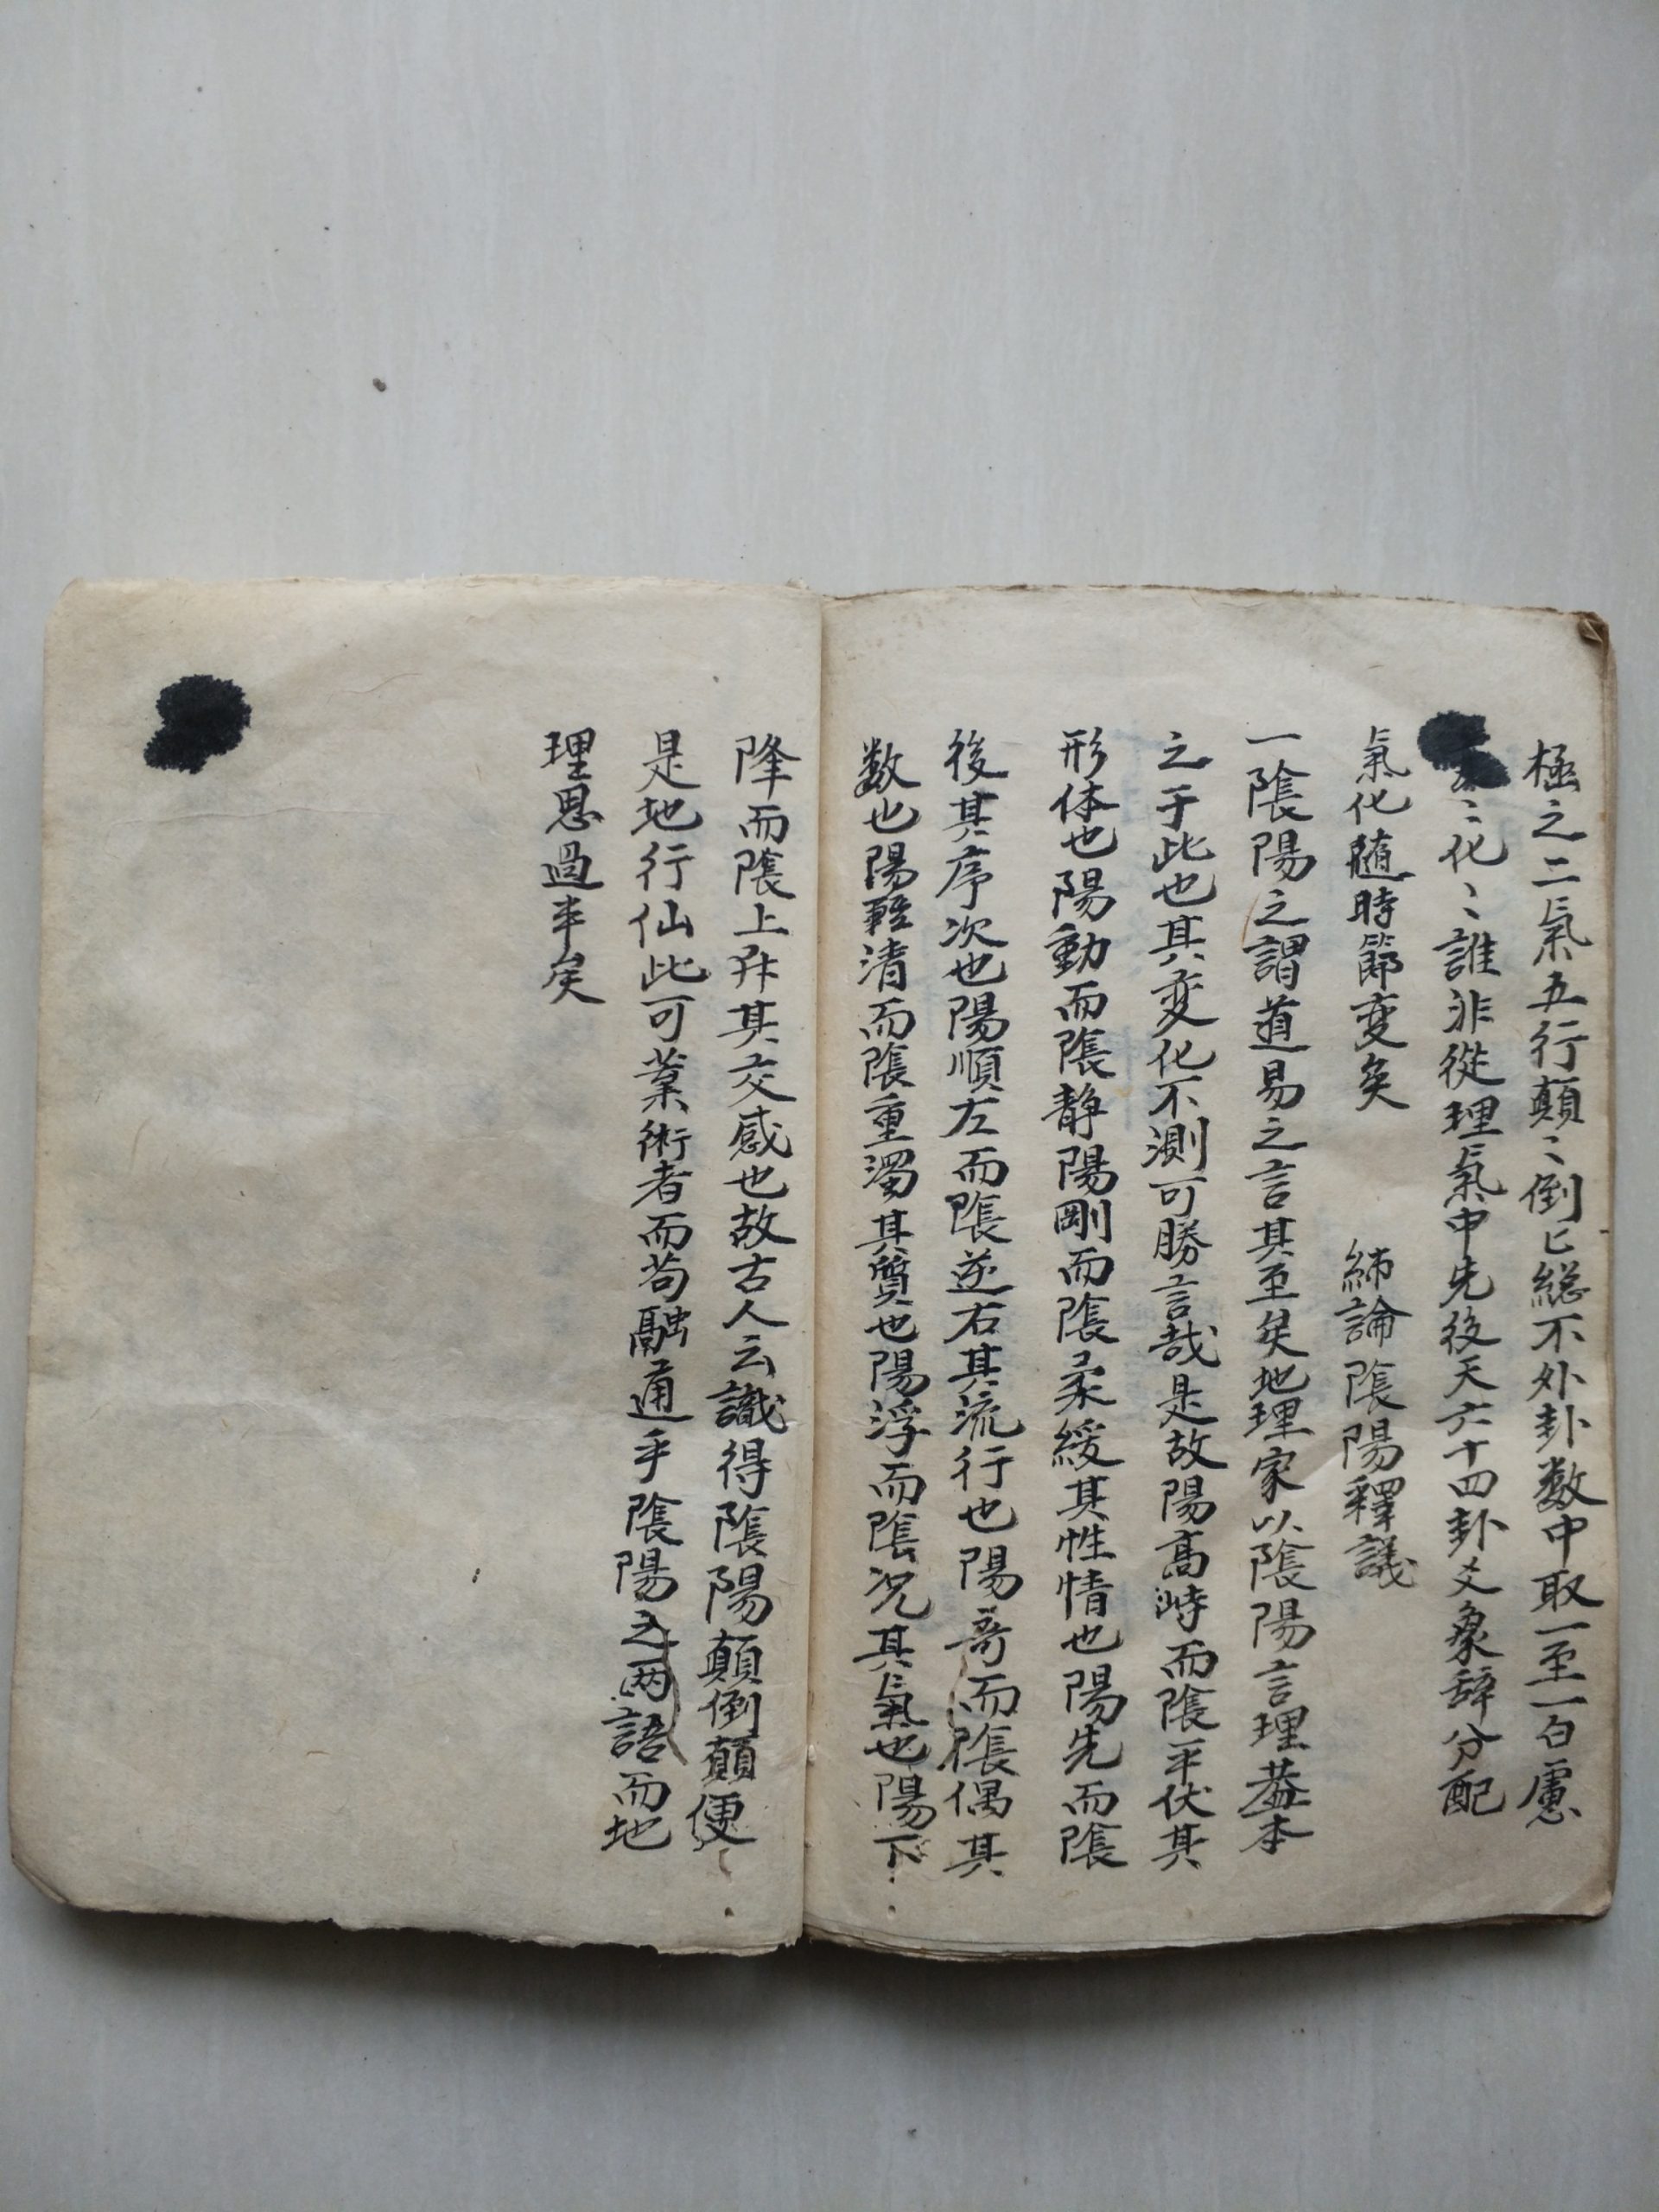 極之二氣五行顛〻倒已総不外卦数中取一至一白慮
〻化〻誰非從理氣中先後天六十四卦爻象辞分配
氣化随時節变矣　締論陰陽釋議
一陰陽之謂道易之言其至矣地理家以陰陽言理蓋本
之于此也其变化不測可勝言哉是故陽高峙而陰平伏其
形体也陽動而陰静陽剛而陰柔緩其性情也陽先而陰
後其序次也陽順左而陰逆右其流行也陽奇而陰偶其
数也陽軽清而陰重濁其質也陽浮而陰况其氣也陽下
降而陰上升其交感也故古人云識得陰陽顛倒顛便
是地行仙此可業術者而苟融通乎陰陽之两語而地
理思過半矣